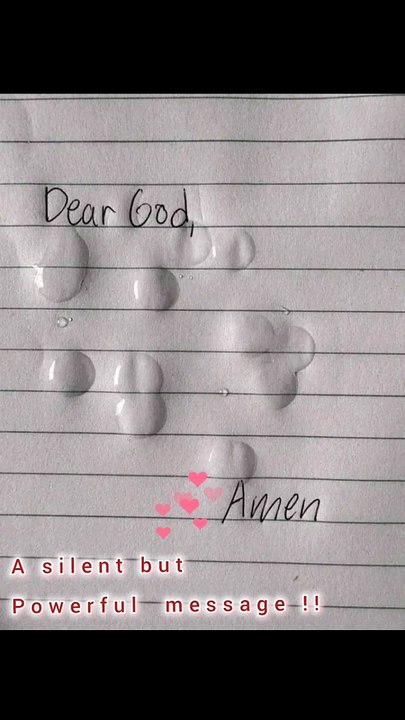 Dear God,
Amen
A silent but
Powerful message !!